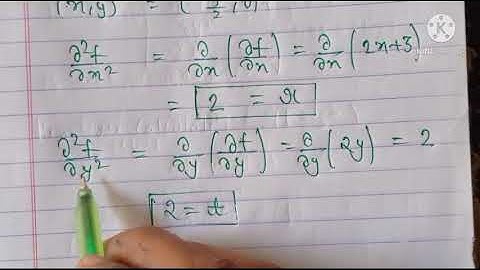 (x,y) = (3/2, 0)
∂²f/∂x² = ∂/∂x (∂f/∂x) = ∂/∂x (2x+3)
= 2 = r
∂²f/∂y² = ∂/∂y (∂f/∂y) = ∂/∂y (2y) = 2
2 = t
K